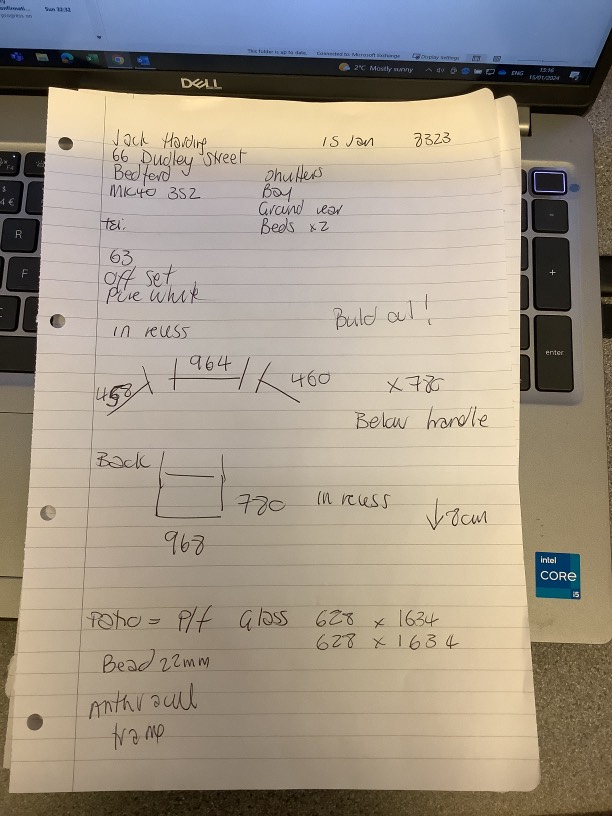 Sun 22:32
This folder is up to date. Connected to: Microsoft Exchange Display Settings
2°C Mostly sunny ENG 15:16
15/01/2024
DELL
Jack Harding 15 Jan 8323
66 Dudley Street
Bedford Shutters
MK40 3S2 Bay
Ground rear
Tel: Beds x2
63
Off set
Pure white
Build out!
in recess
964
458 460 x 780
Below handle
Back
780 in recess ↓8cm
968
Patio = P/f Glass 628 x 1634
628 x 1634
Bead 22mm
intel
CORE
i5
R
F
enter